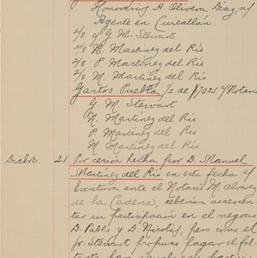 Honorarios A. Olivera Diaz, s/
Agente en Cuicatlán
2/8 G. M. Stewart
2/8 N. Martinez del Rio
2/8 P. Martinez del Rio
2/8 M. Martinez del Rio
Gastos Puebla 1/2 de Notario
G. M. Stewart
N. Martinez del Rio
P. Martinez del Rio
M. Martinez del Rio
Dicbre. 21 Por cesión hecha por D. Manuel
Martinez del Rio en esta fecha s/
Escritura ante el Notario M. Alvarez
de la Cadena, deberian acrecen-
tar su participación en el negocio
D. Pablo y D. Nicolas, pero como el
Sr. Stewart propuso pagar el fal-